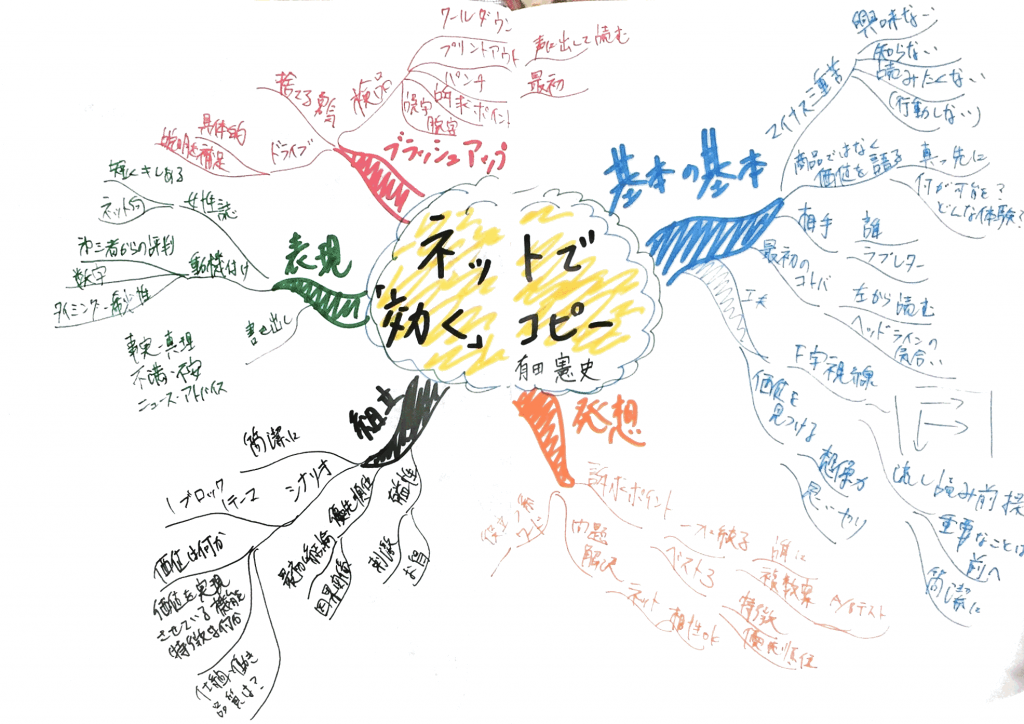 ネットで
「効く」コピー
有田憲史
基本の基本
マイナス三重苦
興味ない
知らない
読みたくない
(行動しない)
商品ではなく
価値を語る
真っ先に
何が可能を?
どんな体験?
相手
誰
ラブレター
最初の
コトバ
左から読む
ヘッドラインの
具合い
工夫
F字視線
流し読み前提
重要なことは
前へ
簡潔に
価値を
見つける
想像力
思いやり
発想
訴求ポイント
一つに絞る
誰に
複数案
A/Bテスト
問題
解決
ベスト3
特徴
優先順位
ネット
相性OK
役立つ系
ワード
組立
簡潔に
シナリオ
1ブロック
1テーマ
価値は何か
価値を実現
させている機能
特徴は何か
仕組・働き
品質は?
優先順位
最初に結論
因果関係
磁性
刺激
お得
表現
女性誌
短くキレある
ネット向
動機付け
第三者からの評判
数字
タイミング・希少性
書き出し
事実・真理
不満・不安
ニュース・アドバイス
ブラッシュアップ
検品
クールダウン
プリントアウト
声に出して読む
パンチ
最初
訴求ポイント
誤字
脱字
捨てる勇気
ドライブ
具体的
説明を補足